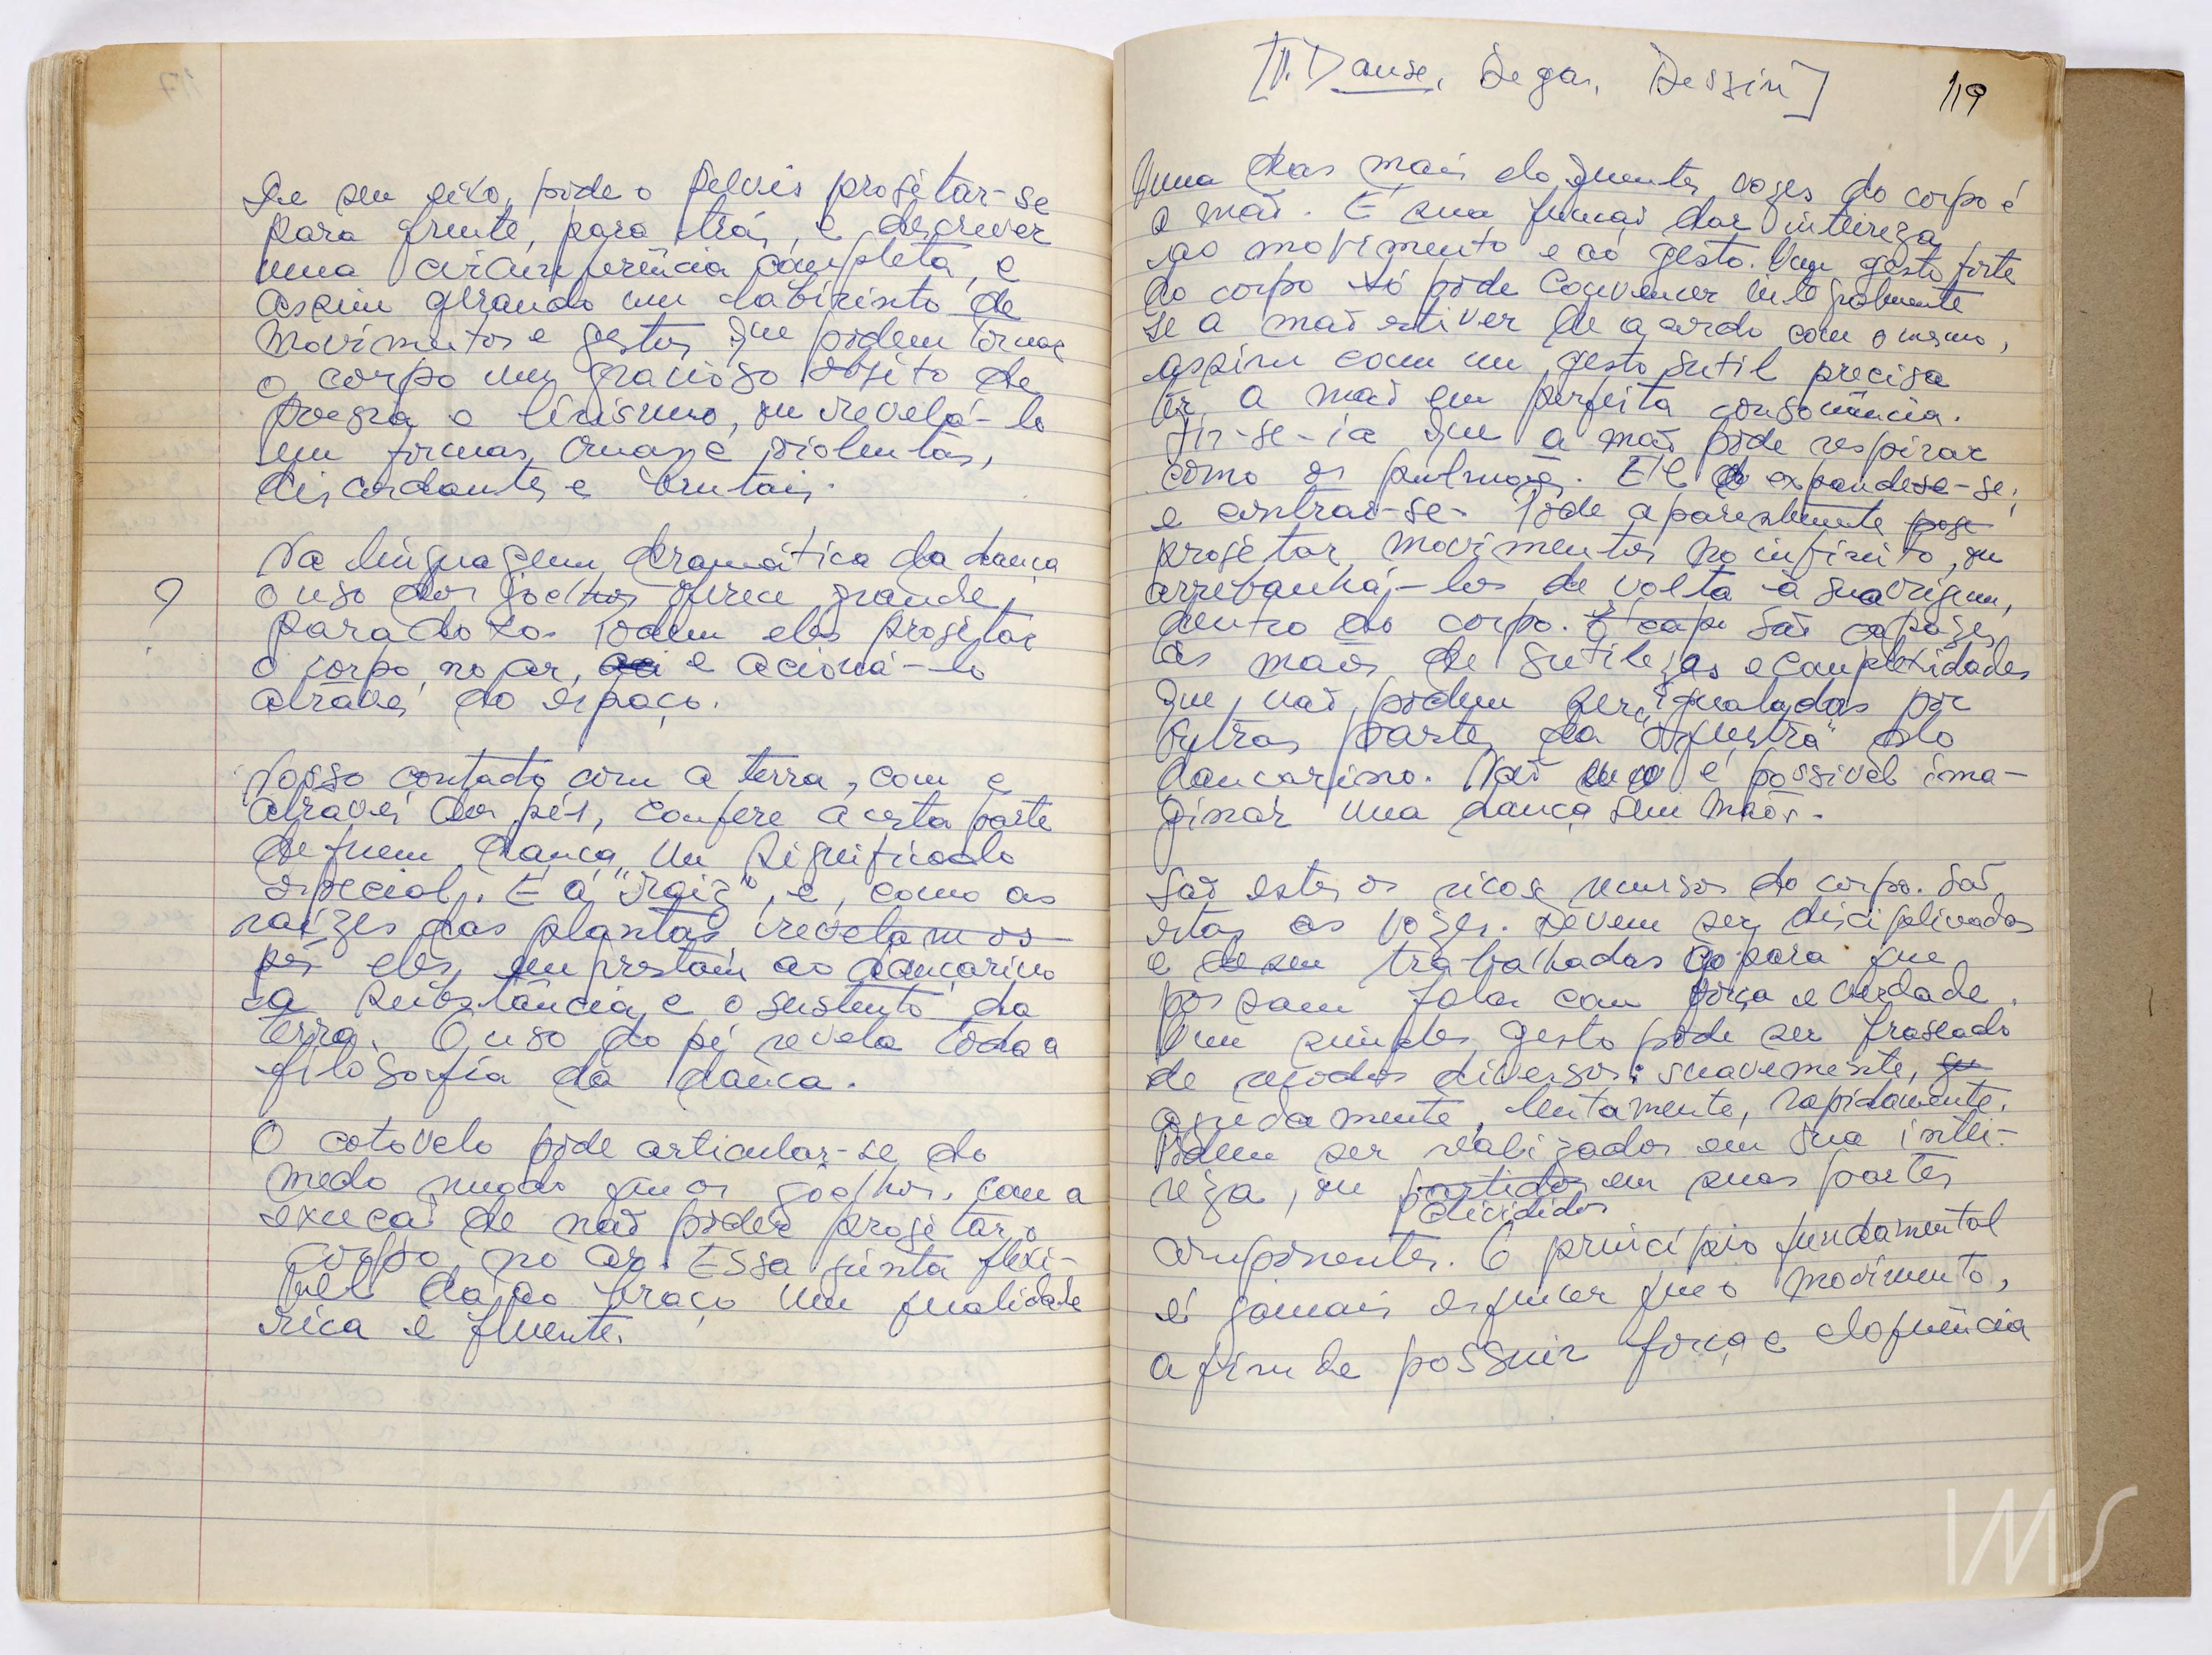 De seu eixo, pode o pelvis projetar-se
para frente, para trás, e descrever
uma circunferência completa, e
assim gerando um labirinto de
movimentos e gestos que podem tornar
o corpo um gracioso objeto de
poesia e lirismo, ou revelá-lo
em formas cruas e violentas,
discordantes e brutais.
Na linguagem dramática da dança
?
o uso dos joelhos oferece grande
paradoxo. Podem eles projetar
o corpo no ar, e acioná-lo
através do espaço.
Nosso contato com a terra, com e
através dos pés, confere a esta parte
de quem dança um significado
especial. É a "raiz", e, como as
raízes das plantas revelam os
pés eles emprestam ao dançarino
a substância e o sustento da
terra. O uso do pé revela toda a
filosofia da dança.
O cotovelo pode articular-se do
mesmo modo que os joelhos, com a
exceção de não poder projetar o
corpo no ar. Essa junta flexí-
vel dá ao braço um qualidade
rica e fluente.
[V. Danse, Degas, Dessin]
119
Uma das mais eloquentes vozes do corpo é
a mão. É sua função dar inteireza
ao movimento e ao gesto. Um gesto forte
do corpo só pode convencer integralmente
se a mão estiver de acordo com o mesmo,
assim com um gesto sutil precisa
ter a mão em perfeita consonância.
Dir-se-ia que a mão pode respirar
como os pulmões. Ela expande-se-se;
e contrai-se. Pode aparentemente
projetar movimentos no infinito, ou
arrebanhá-los de volta à sua origem,
dentro do corpo. É cap São capazes
as mãos de sutilezas e complexidades
que não podem ser igualadas por
outras partes da "orquestra" do
dançarino. Não é possível ima-
ginar uma dança sem mãos.
São estes os ricos recursos do corpo. São
estas as vozes. Devem ser disciplinadas
e trabalhadas para que
possam falar com força e verdade.
Um simples gesto pode ser fraseado
de modos diversos: suavemente, su
agudamente, lentamente, rapidamente.
Podem ser realizados em sua intei-
reza, ou partidos em suas partes
divididos
componentes. O princípio fundamental
é jamais esquecer que o movimento,
a fim de possuir força e eloquência
IMS